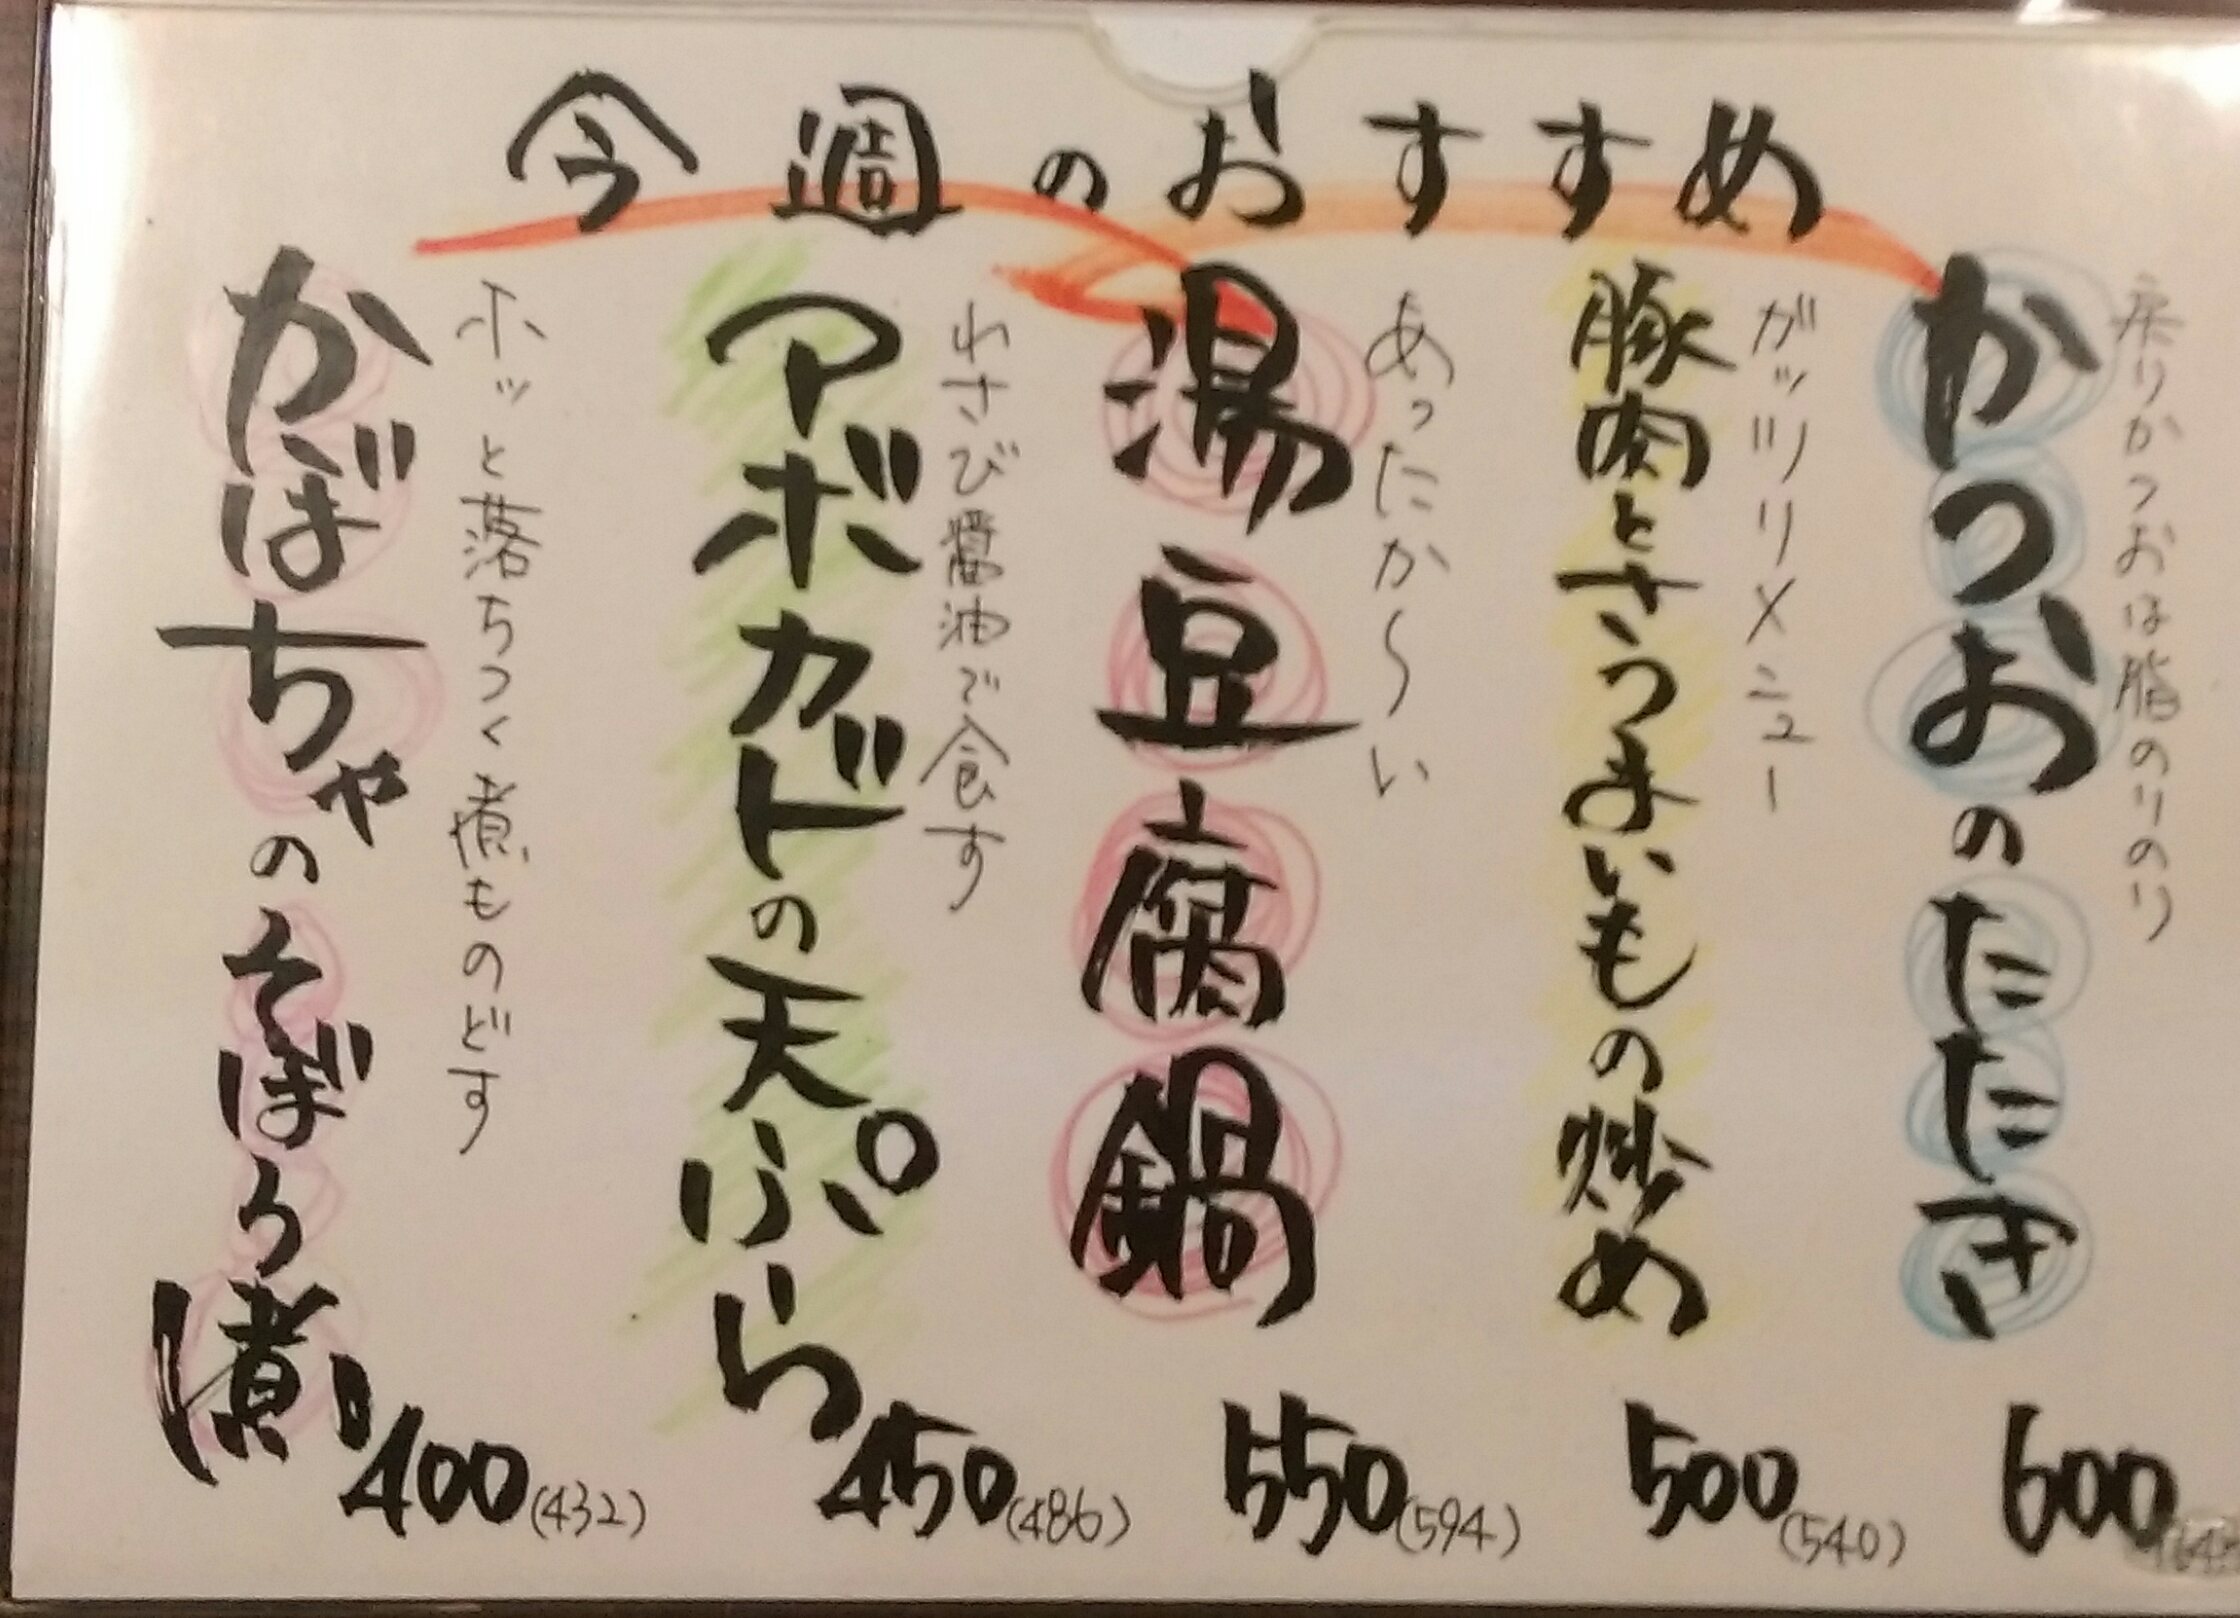 今週のおすすめ
戻りかつおは脂のりのり
かつおのたたき
600
ガッツリメニュー
豚肉とさつまいもの炒め
500(540)
あったか～い
湯豆腐鍋
550(594)
わさび醤油で食す
アボカドの天ぷら
450(486)
ホッと落ちつく煮ものどす
かぼちゃのそぼろ煮
400(432)